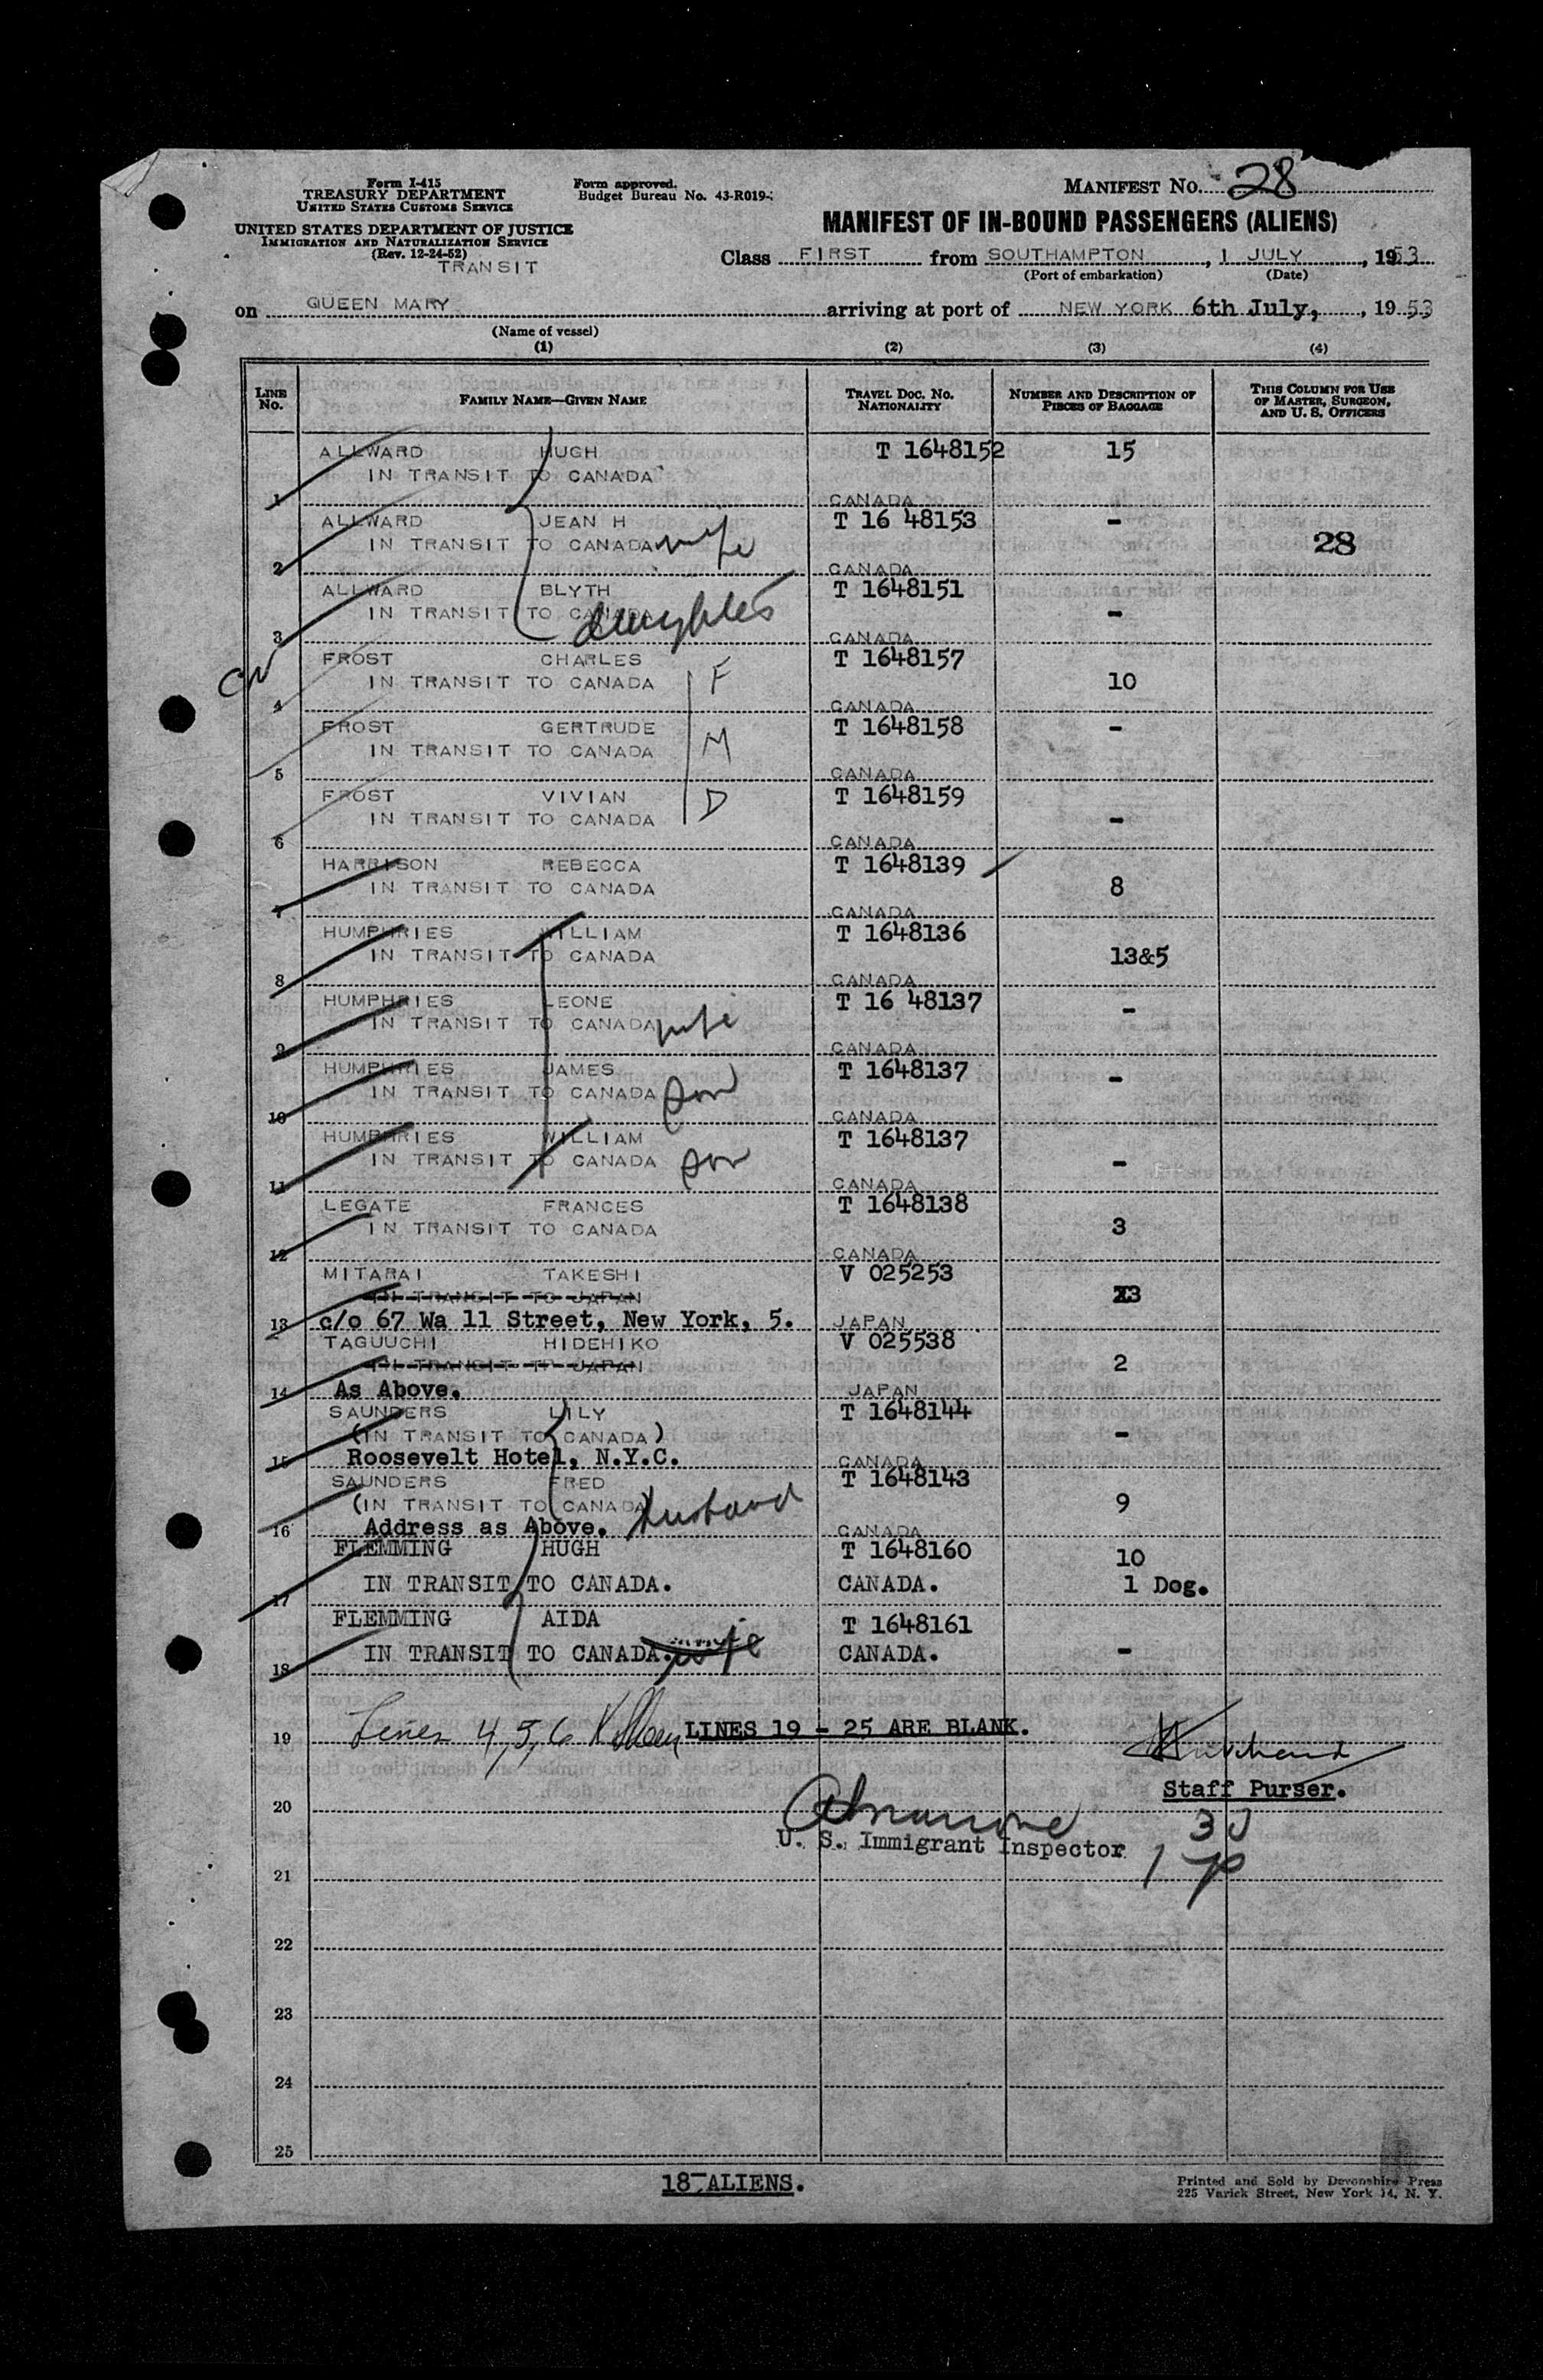 Form I-415
TREASURY DEPARTMENT
UNITED STATES CUSTOMS SERVICE
UNITED STATES DEPARTMENT OF JUSTICE
IMMIGRATION AND NATURALIZATION SERVICE
(Rev. 12-24-52)
TRANSIT
Form approved.
Budget Bureau No. 43-R019-
MANIFEST NO. 28
MANIFEST OF IN-BOUND PASSENGERS (ALIENS)
Class FIRST from SOUTHAMPTON, 1 JULY, 1953
(Port of embarkation) (Date)
on QUEEN MARY arriving at port of NEW YORK 6th July, , 1953
(Name of vessel)
(1) (2) (3) (4)
LINE No. FAMILY NAME—GIVEN NAME TRAVEL DOC. NO. NATIONALITY NUMBER AND DESCRIPTION OF PIECES OF BAGGAGE THIS COLUMN FOR USE OF MASTER, SURGEON, AND U. S. OFFICERS
ALLWARD HUGH T 1648152 15
IN TRANSIT TO CANADA
1 CANADA
ALLWARD JEAN H T 16 48153 -
IN TRANSIT TO CANADA wife 28
2 CANADA
ALLWARD BLYTH T 1648151
IN TRANSIT TO CANADA daughter -
3 CANADA
FROST CHARLES T 1648157
IN TRANSIT TO CANADA F 10
4 CANADA
FROST GERTRUDE T 1648158 -
IN TRANSIT TO CANADA M
5 CANADA
FROST VIVIAN T 1648159
IN TRANSIT TO CANADA D -
6 CANADA
HARRISON REBECCA T 1648139
IN TRANSIT TO CANADA 8
7 CANADA
HUMPHRIES WILLIAM T 1648136
IN TRANSIT TO CANADA 13&5
8 CANADA
HUMPHRIES LEONE T 16 48137 -
IN TRANSIT TO CANADA wife
9 CANADA
HUMPHRIES JAMES T 1648137 -
IN TRANSIT TO CANADA son
10 CANADA
HUMPHRIES WILLIAM T 1648137
IN TRANSIT TO CANADA son -
11 CANADA
LEGATE FRANCES T 1648138
IN TRANSIT TO CANADA 3
12 CANADA
MITARAI TAKESHI V 025253
IN TRANSIT TO JAPAN 3
13 c/o 67 Wa 11 Street, New York, 5. JAPAN
TAGUUCHI HIDEHIKO V 025538
IN TRANSIT TO JAPAN 2
14 As Above. JAPAN
SAUNDERS LILY T 1648144
(IN TRANSIT TO CANADA) -
15 Roosevelt Hotel, N.Y.C. CANADA
SAUNDERS FRED T 1648143
(IN TRANSIT TO CANADA) husband 9
16 Address as Above. CANADA
FLEMMING HUGH T 1648160 10
IN TRANSIT TO CANADA. CANADA. 1 Dog.
17
FLEMMING AIDA T 1648161
IN TRANSIT TO CANADA. wife CANADA. -
18
19 Lines 4,5,6 LINES 19 - 25 ARE BLANK.
Staff Purser.
20
U. S. Immigrant Inspector
21
22
23
24
25
18 ALIENS.
Printed and Sold by Devonshire Press
225 Varick Street, New York 14, N. Y.